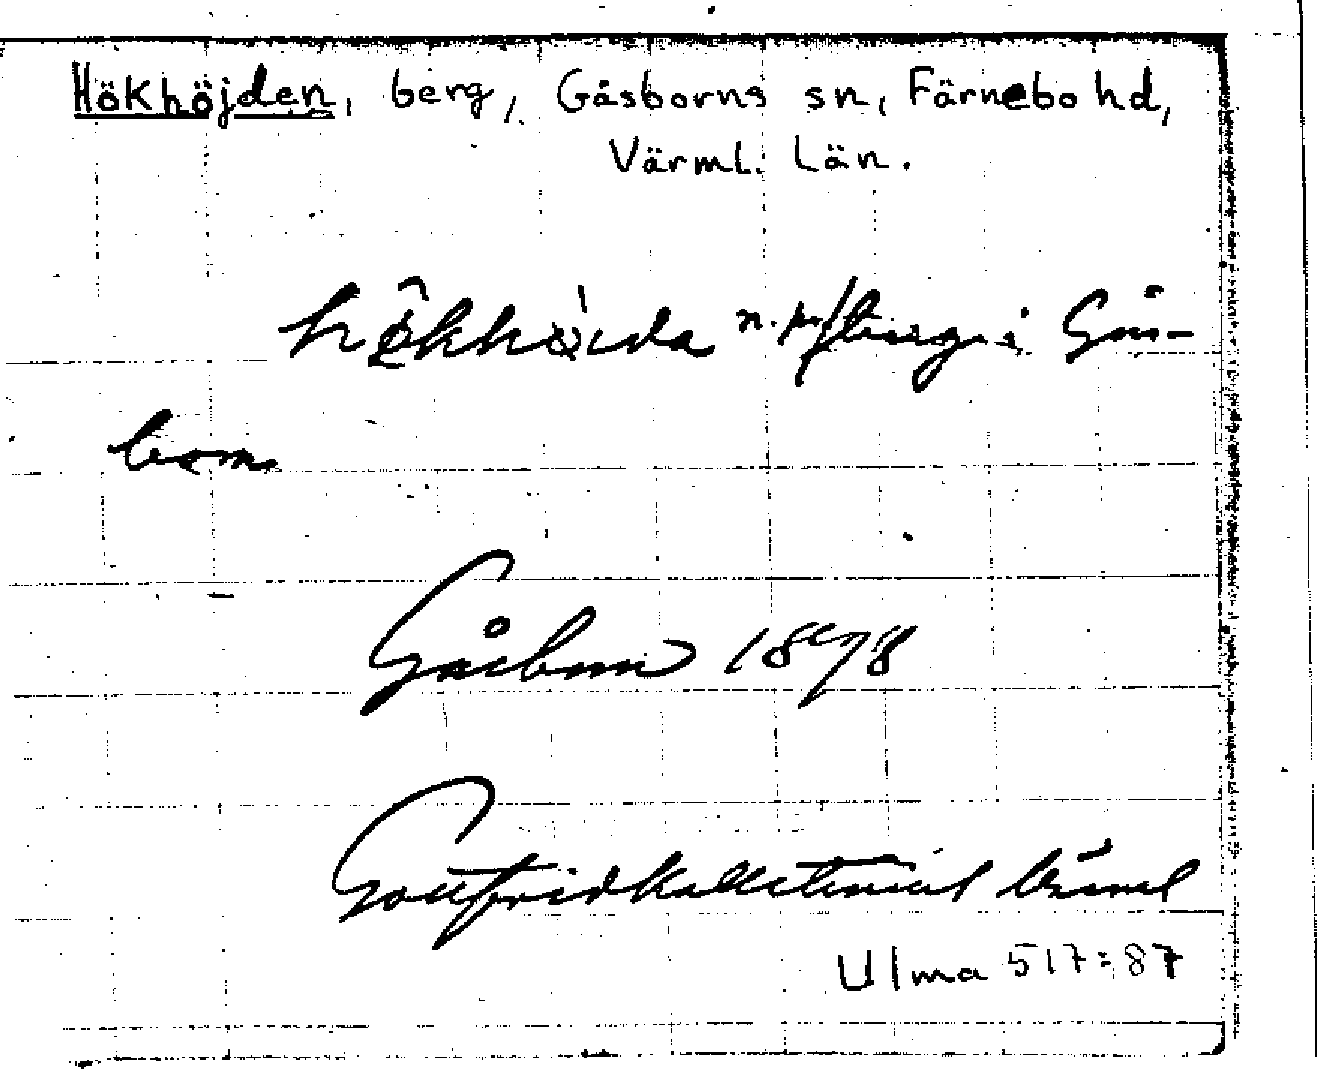 Hökhöjden, berg, Gåsborns sn, Färnebo hd,
Värml. Län.
hökhöida n. pr/berg i Gås-
born
Gåsborn 1898
Gottfrid Kallstenius
Ulma 517:87